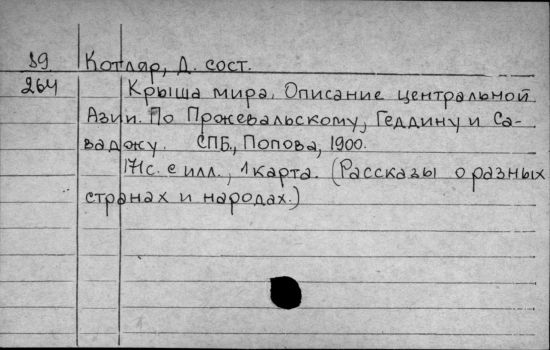 89 Котляр, Д. сост.
264 Крыша мира. Описание центральной
Азии. По Пржевальскому, Геддину и Са-
ваджу. СПБ., Попова, 1900.
171с. с илл., 1 карта. (Рассказы о разных
странах и народах.)